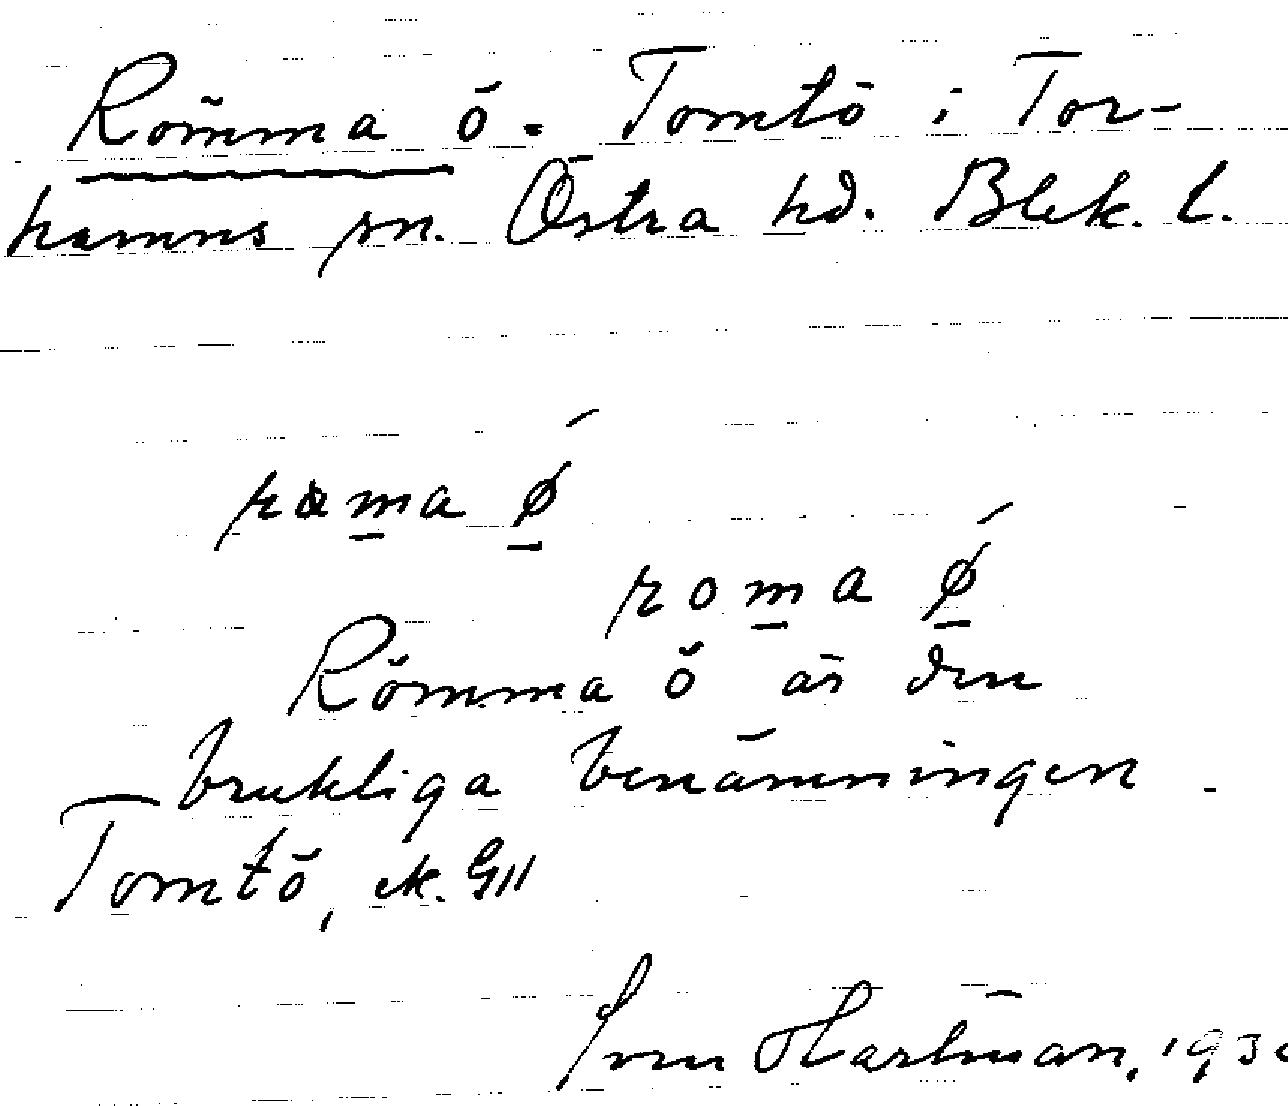 Römma ö. Tomtö i Tor-
hamns sn. Östra hd. Blek. l.
roma ǿ
Römma ö är den
brukliga benämningen.
Tomtö, ek. G11
Hartman, 193